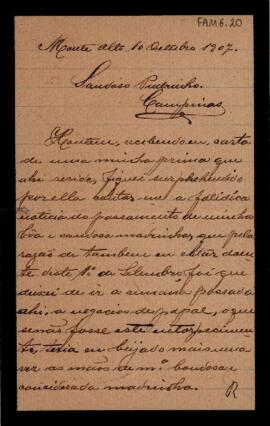 FAM 6.20
Monte Alto 10 Outubro 1907.
Saudoso Padrinho.
Campinas
Hontem, recebendo eu, carta
de uma minha prima que
ahi reside, fiquei surprehendido
por ella contar-me a fatidica
noticia do passamento de minha
bôa e saudosa madrinha, que pela
razão de tambem eu estar doen-
te deste 1º de Setembro foi que
deixei de ir a semana passada
ahi, a negocios de papae, o que
se não fosse este
te, teria eu beijado mais uma
vez as mãos de mª bondosa e
considerada madrinha.
R